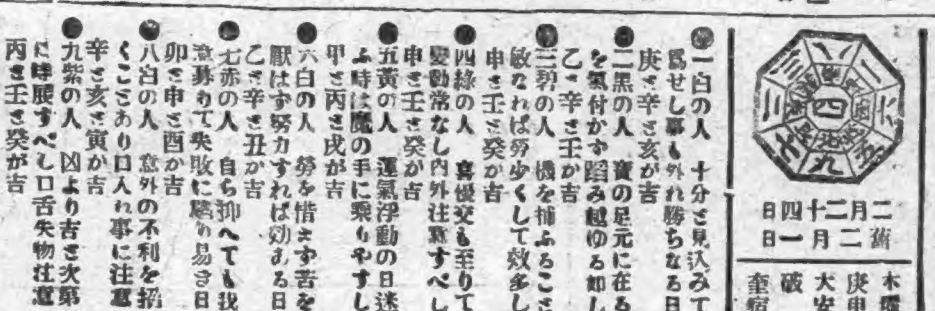 二月二十四日
舊二月一日
木曜
庚申
大安
破
奎宿
四
九
●一白の人 十分と見込みて
爲せし事も外れ勝ちなる日
庚と辛と亥が吉
●二黑の人 寶の足元に在る
を氣付かず蹈み越ゆる如し
乙と辛と壬が吉
●三碧の人 機を捕ふること
敏なれば勞少くして效多し
申と壬と癸が吉
●四綠の人 喜優交も至りて
變動常なし内外注意すべし
申と壬と癸が吉
●五黄の人 運氣浮動の日迷
ふ時は魔の手に乘りやすし
甲と丙と戌が吉
●六白の人 勞を惜まず苦を
厭はず努力すれば効ある日
乙と辛と丑か吉
●七赤の人 自ら抑へても我
意募りて失敗に陷り易き日
卯と申と酉か吉
●八白の人 意外の不利を招
くことあり口入れ事に注意
辛と亥と寅か吉
●九紫の人 凶より吉と次第
に時腰すべし口舌失物注意
丙と壬と癸が吉